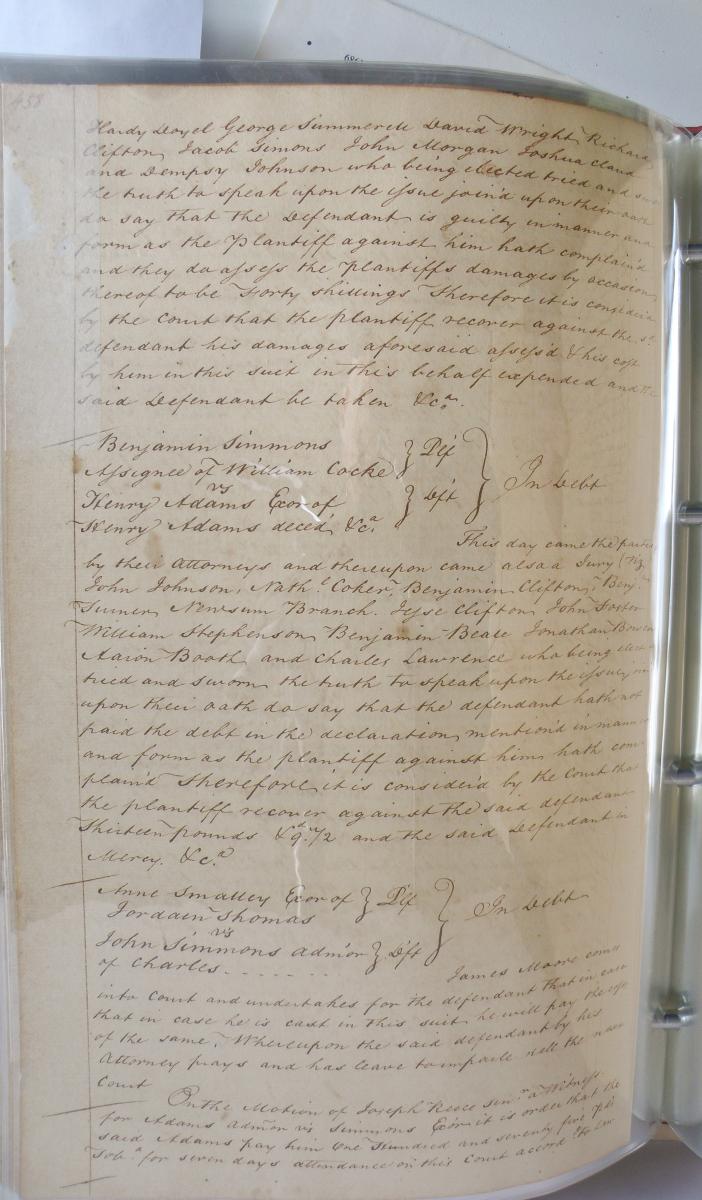 458
Hardy Doyel George Summerell David Wright Richard
Clifton, Jacob Simons John Morgan Joshua Claud
and Dempsy Johnson who being elected tried and
the truth to speak upon the issue join'd upon their oath
do say that the Defendant is guilty in manner and
form as the Plantiff against him hath complain'd
and they do assess the Plantiffs damages by occasion
thereof to be Forty shillings Therefore it is consider'd
by the Court that the plantiff recover against the sd.
defendant his damages aforesaid assess'd & his cost
by him in this suit in this behalf expended and the
said Defendant be taken &ca.
Benjamin Simmons
Assignee of William Cocke } Plf
vs } In Debt
Henry Adams Exor of } Dft
Henry Adams deced, &ca.
This day came the parties
by their Attorneys and thereupon came also a Jury (Viz.
John Johnson, Nathl. Coker, Benjamin Clifton, Benj.
Turner, Newsum Branch. Jesse Clifton, John Foster
William Stephenson, Benjamin Beale Jonathan Bowen
Aaron Booth and Charles Lawrence who being elec
tried and sworn the truth to speak upon the issue
upon their oath do say that the defendant hath not
paid the debt in the declaration mention'd in mann
and form as the plantiff against him hath com
plain'd Therefore it is consider'd by the Court tha
the plantiff recover against the said defendant
Thirteen pounds & 9d. 1/2 and the said Defendant in
Mercy. &ca.
Anne Smalley Exor of } Plf
Jordain Thomas
vs } In Debt
John Simmons admor } Dft
of Charles - - - - - - -
James Moore comes
into Court and undertakes for the defendant that in case
that in case he is cast in this suit he will pay the
of the same, Whereupon the said defendant by his
Attorney prays and has leave to imparle till the next
Court
On the Motion of Joseph Reece senr. a Witness
for Adams admor vs Simmons Exor it is order that the
said Adams pay him One Hundred and seventy five Pds
Tobo. for seven days attendance on this Court accord. to Law